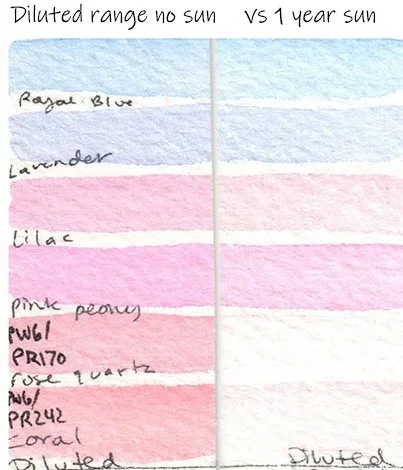 Diluted range no sun vs 1 year sun
Royal Blue
Lavender
Lilac
pink peony
PW6/
PR170
rose quartz
PW6/
PR242
Coral
Diluted Diluted